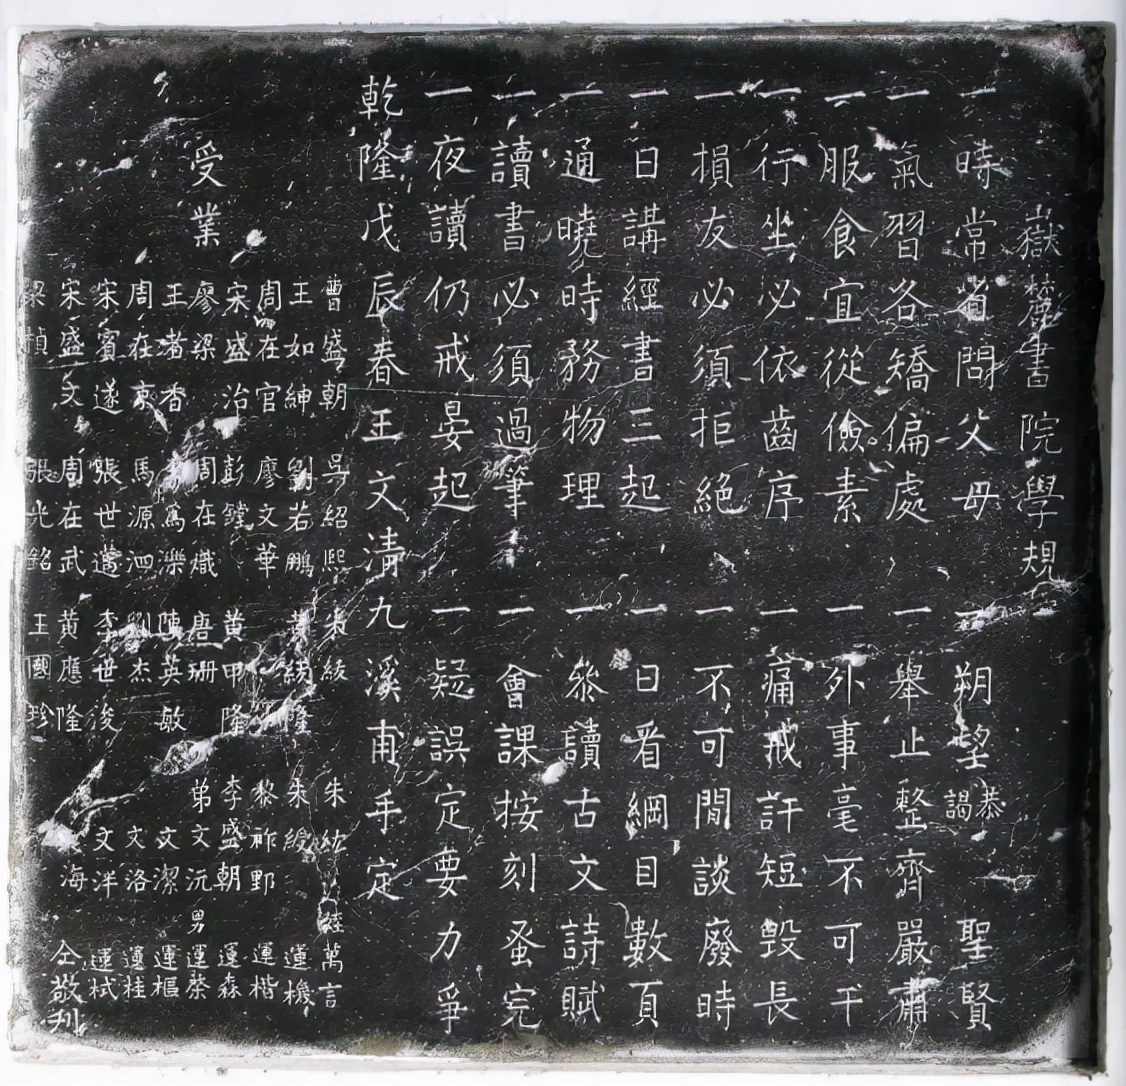 嶽麓書院學規
一時常省問父母 一朔望恭謁聖賢
一氣習各矯偏處 一舉止整齊嚴肅
一服食宜從儉素 一外事毫不可干
一行坐必依齒序 一痛戒訐短毀長
一損友必須拒絕 一不可閒談廢時
一日講經書三起 一日看綱目數頁
一通曉時務物理 一參讀古文詩賦
一讀書必須過筆 一會課按刻蚤完
一夜讀仍戒晏起 一疑誤定要力爭
乾隆戊辰春王文清九溪甫手定
受業
曹盛朝 吳紹熙 朱綾 朱紱 萬言
王如紳 劉若鵬 隆 朱綬 運機
周在官 廖文華 黎祚野 運楷
宋盛治 彭鏜 黃甲隆 李盛朝 運森
廖梁 周在熾 唐珊 弟文沅 男運棨
王者香 馬濼 陳英敏 文潔 運樞
周在京 馬源泗 劉杰 文洛 運桂
宋賓遂 張世邁 李世浚 文洋 運栻
宋盛文 周在武 黃應隆 海 仝敬刊
梁楨 張光銘 王國珍